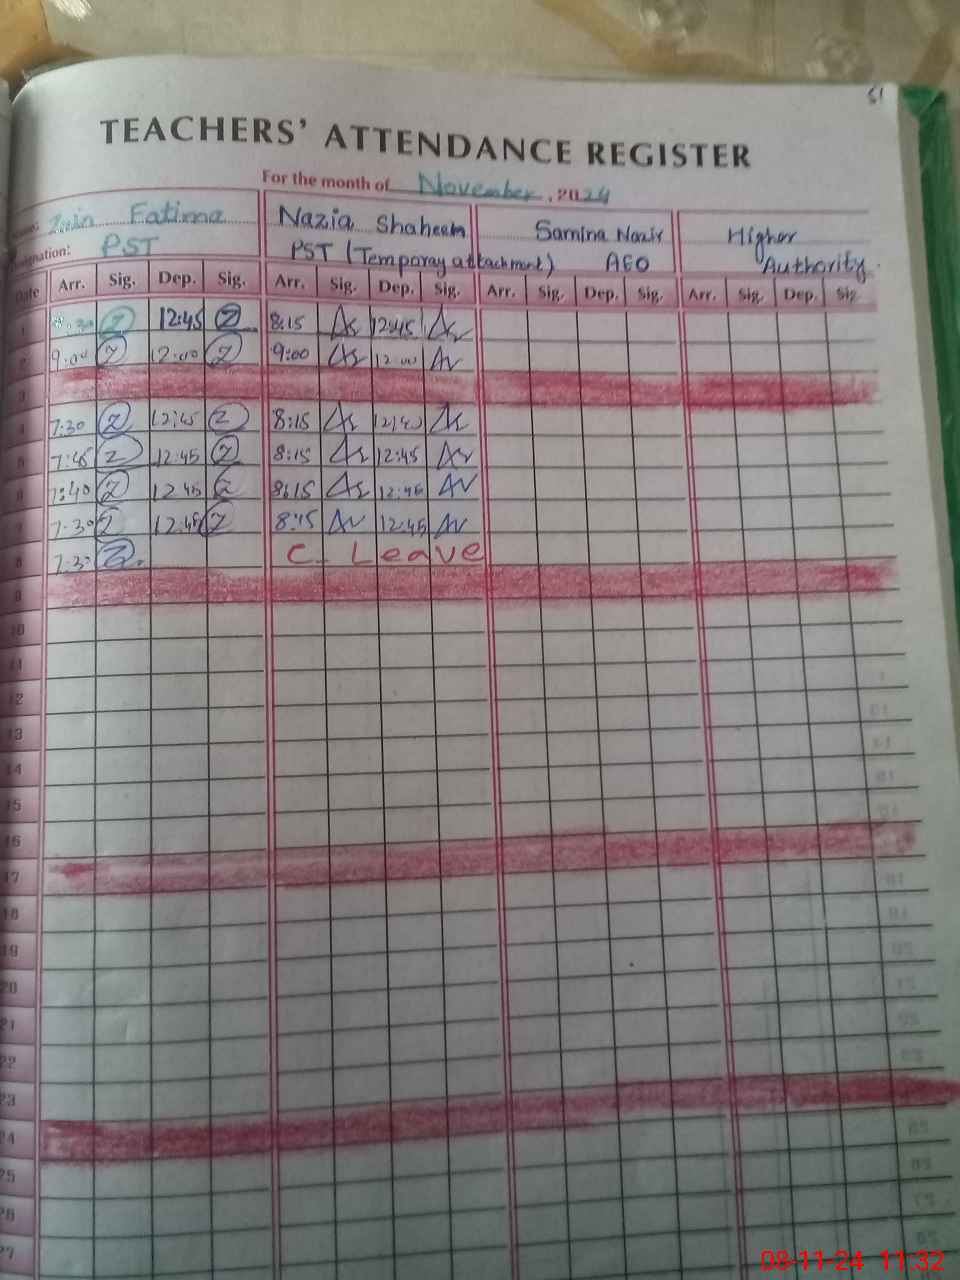 51
TEACHERS' ATTENDANCE REGISTER
For the month of November, 2024
Fatima Nazia Shaheen Samina Higher
PST PST (Temporay attachment) AEO Authority
Date Arr. Sig. Dep. Sig. Arr. Sig. Dep. Sig. Arr. Sig. Dep. Sig. Arr. Sig. Dep. Sig.
1 12:45 8:15 12:45
2 9:00 12:00 9:00 12:00
3
4 7:30 12:45 8:15
5 7:45 12:45 8:15 12:45
6 7:40 12:45 8:15 12:45
7 7:30 12:45 8:15 12:45
8 7:30 C. Leave
9
10
11
12
13
14
15
16
17
18
19
20
21
22
23
24
25
26
27
08-11-24 11:32